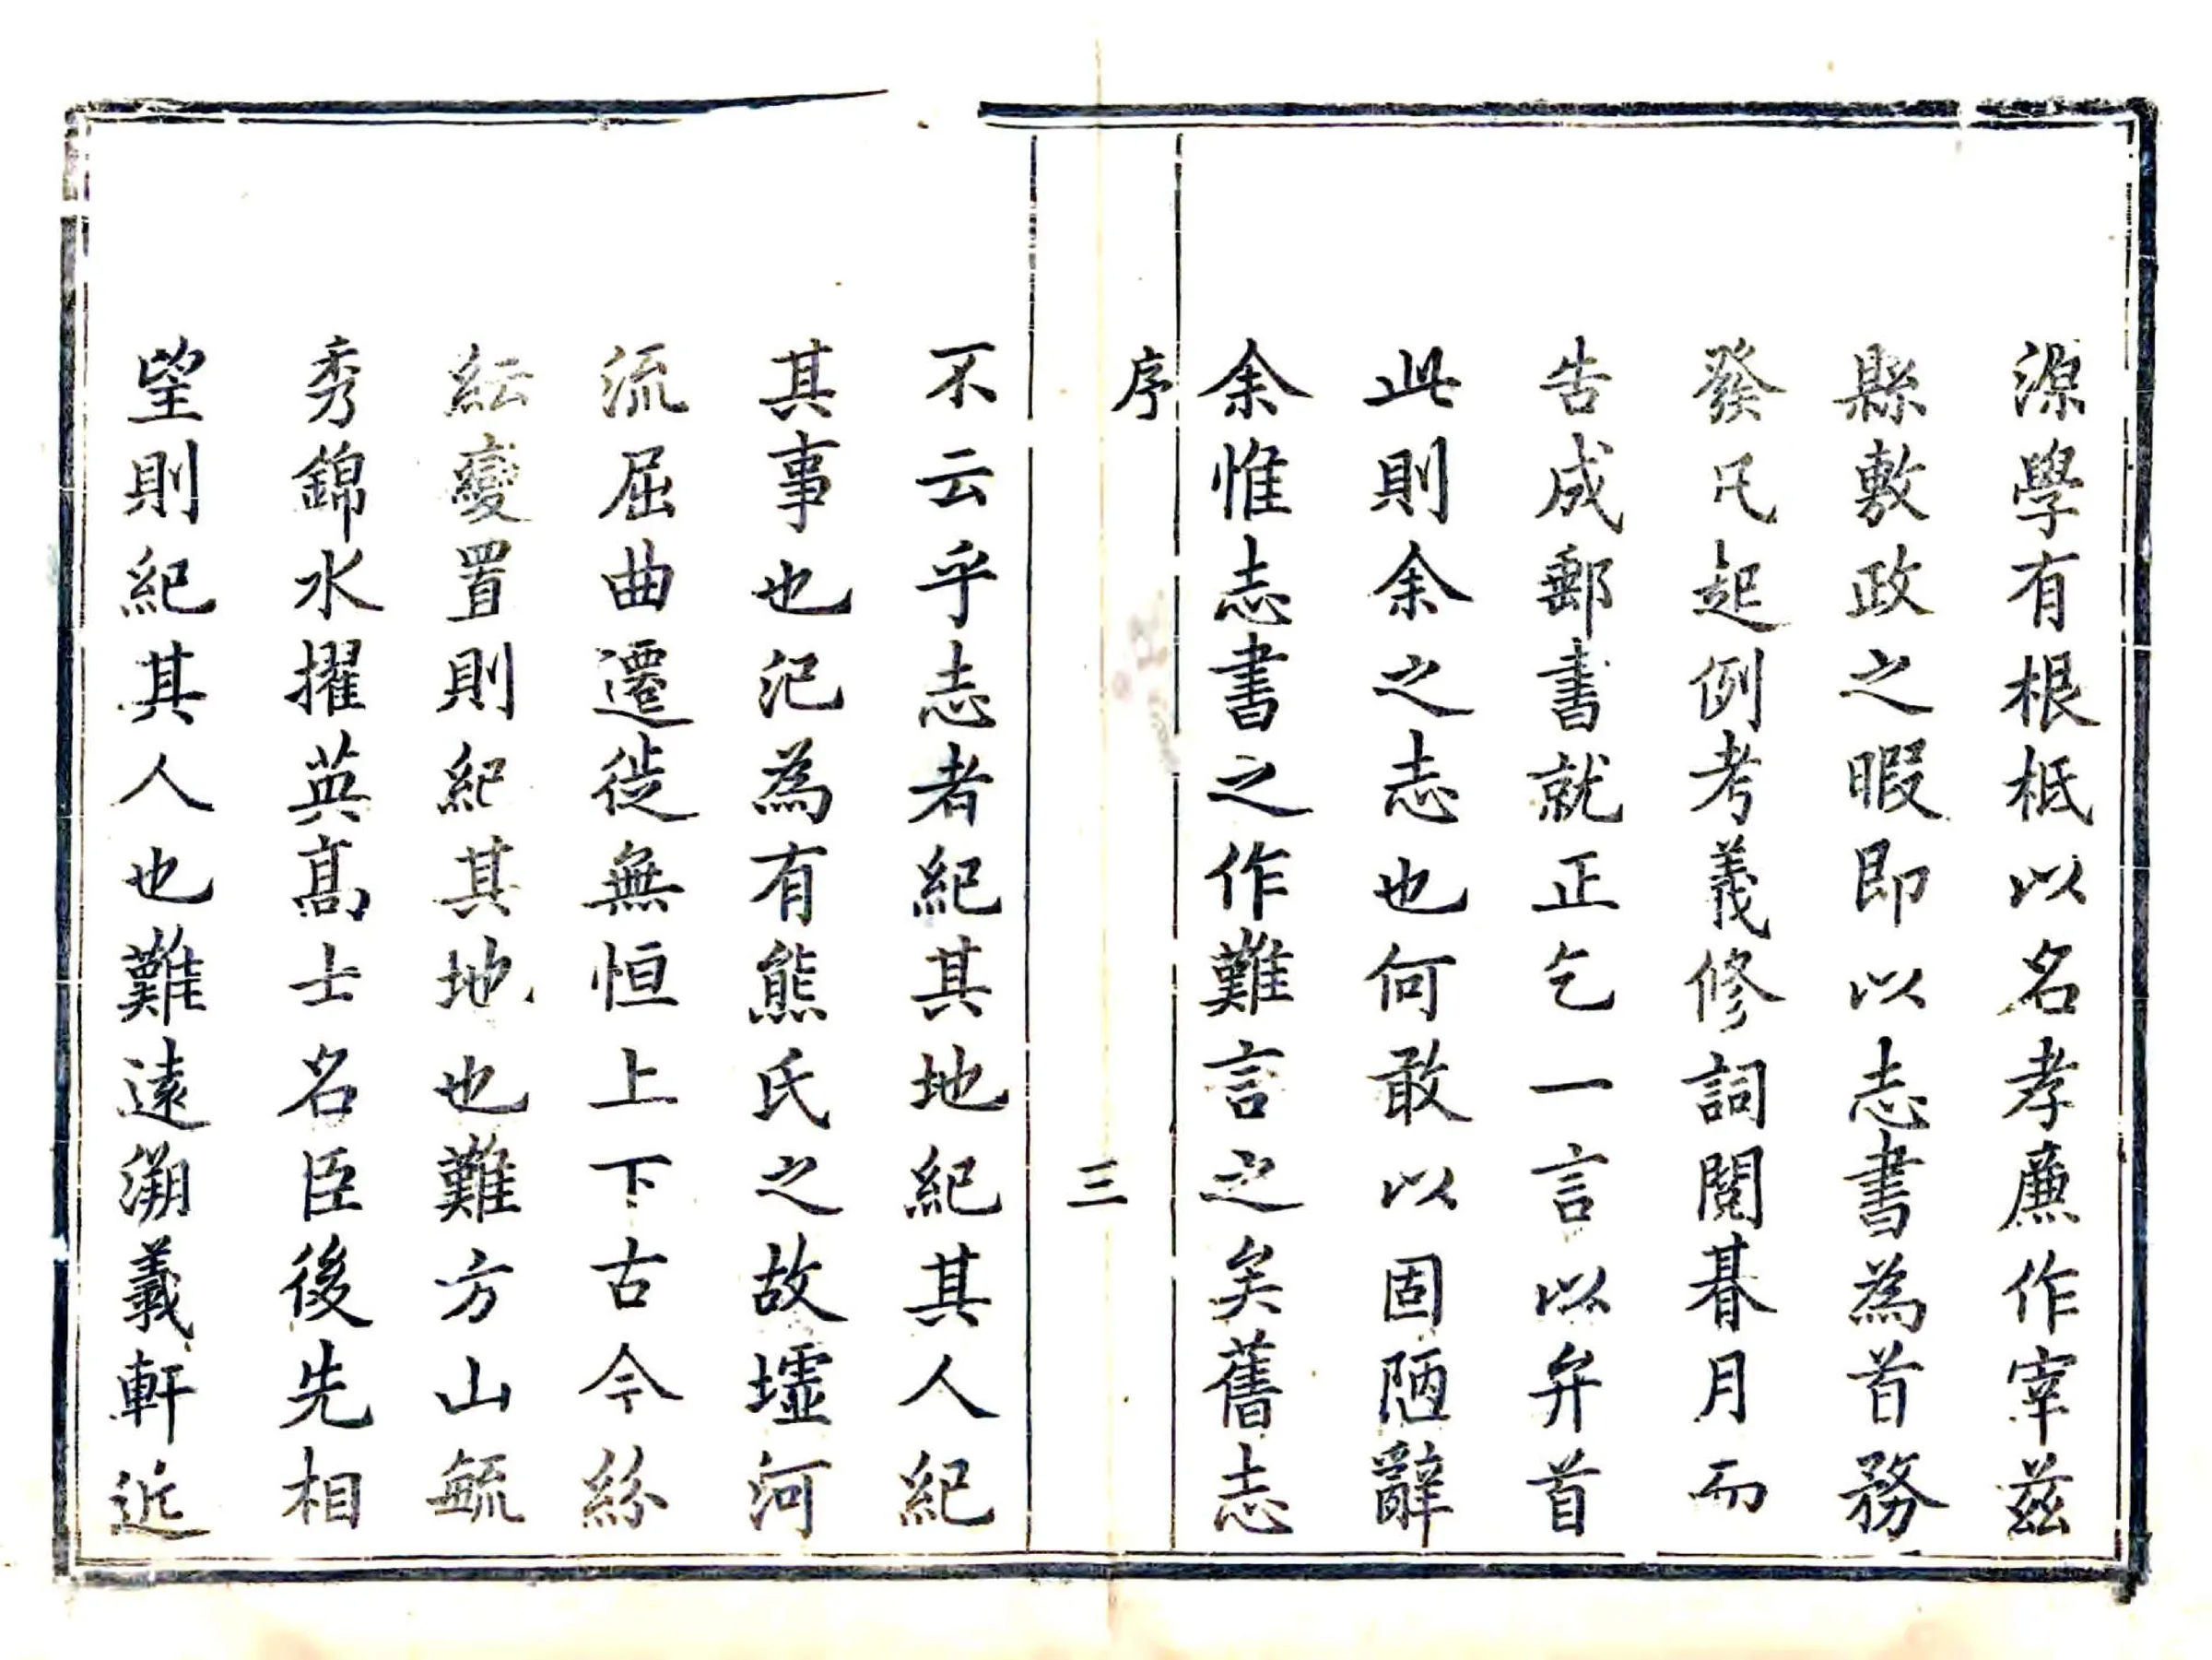 源學有根柢以名孝廉作宰茲
縣敷政之暇即以志書為首務
發凡起例考義修詞閱朞月而
告成郵書就正乞一言以弁首
此則余之志也何敢以固陋辭
余惟志書之作難言之矣舊志
序
三
不云乎志者紀其地紀其人紀
其事也汜為有熊氏之故墟河
流屈曲遷徙無恒上下古今紛
紜變置則紀其地也難方山毓
秀錦水擢英高士名臣後先相
望則紀其人也難遠溯羲軒近